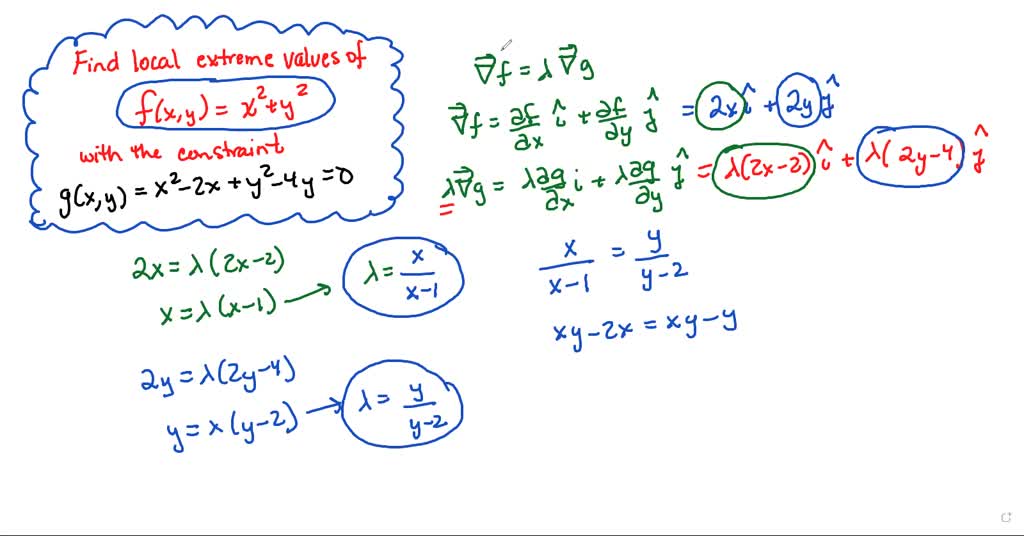 Find local extreme values of
f(x,y) = x² + y²
with the constraint
g(x,y) = x² - 2x + y² - 4y = 0
∇⃗f = λ ∇⃗g
∇⃗f = ∂f/∂x î + ∂f/∂y ĵ = 2x î + 2y ĵ
λ∇⃗g = λ ∂g/∂x i + λ ∂g/∂y ĵ = λ(2x-2) î + λ(2y-4) ĵ
=
2x = λ(2x-2)
x = λ(x-1) → λ = x/(x-1)
2y = λ(2y-4)
y = x(y-2) → λ = y/(y-2)
x/(x-1) = y/(y-2)
xy - 2x = xy - y